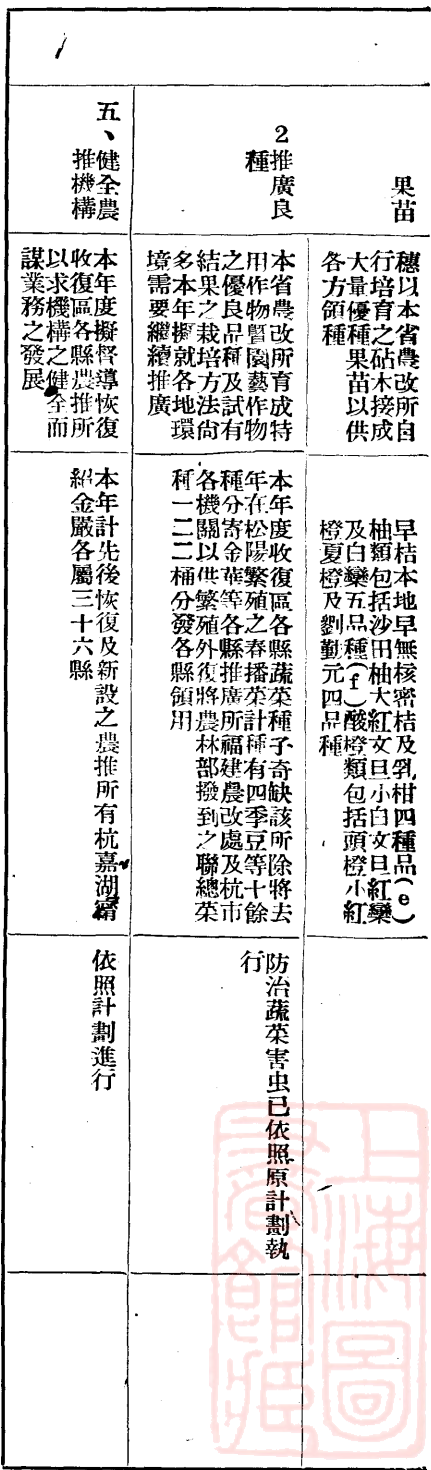 果苗
穗以本省農改所自
行培育之砧木接成
大量優種果苗以供
各方領種
早桔本地早無核密桔及乳柑四種品(e)
柚類包括沙田柚大紅文旦小白文旦紅欒
及白欒五品種(f)酸橙類包括頭橙小紅
橙夏橙及劉勤元四品種
2推廣良
種
本省農改所育成特
用作物暨園藝作物
之優良品种及試有
結果之栽培方法尙
多本年擬就各地環
境需要繼續推廣
本年度收復區各縣蔬菜種子奇缺該所除將去
年在松陽繁殖之春播菜計種有四季豆等十餘
種分寄金華等各縣推廣所福建農改處及杭市
各機關以供繁殖外復將農林部撥到之聯總菜
種一二二桶分發各縣領用
防治蔬菜害虫已依照原計劃執
行
五、健全農
推機構
本年度擬督導恢復
收復區各縣農推所
以求機構之健全而
謀業務之發展
本年計先後恢復及新設之農推所有杭嘉湖甯
紹金嚴各屬三十六縣
依照計劃進行
上海圖
書館藏